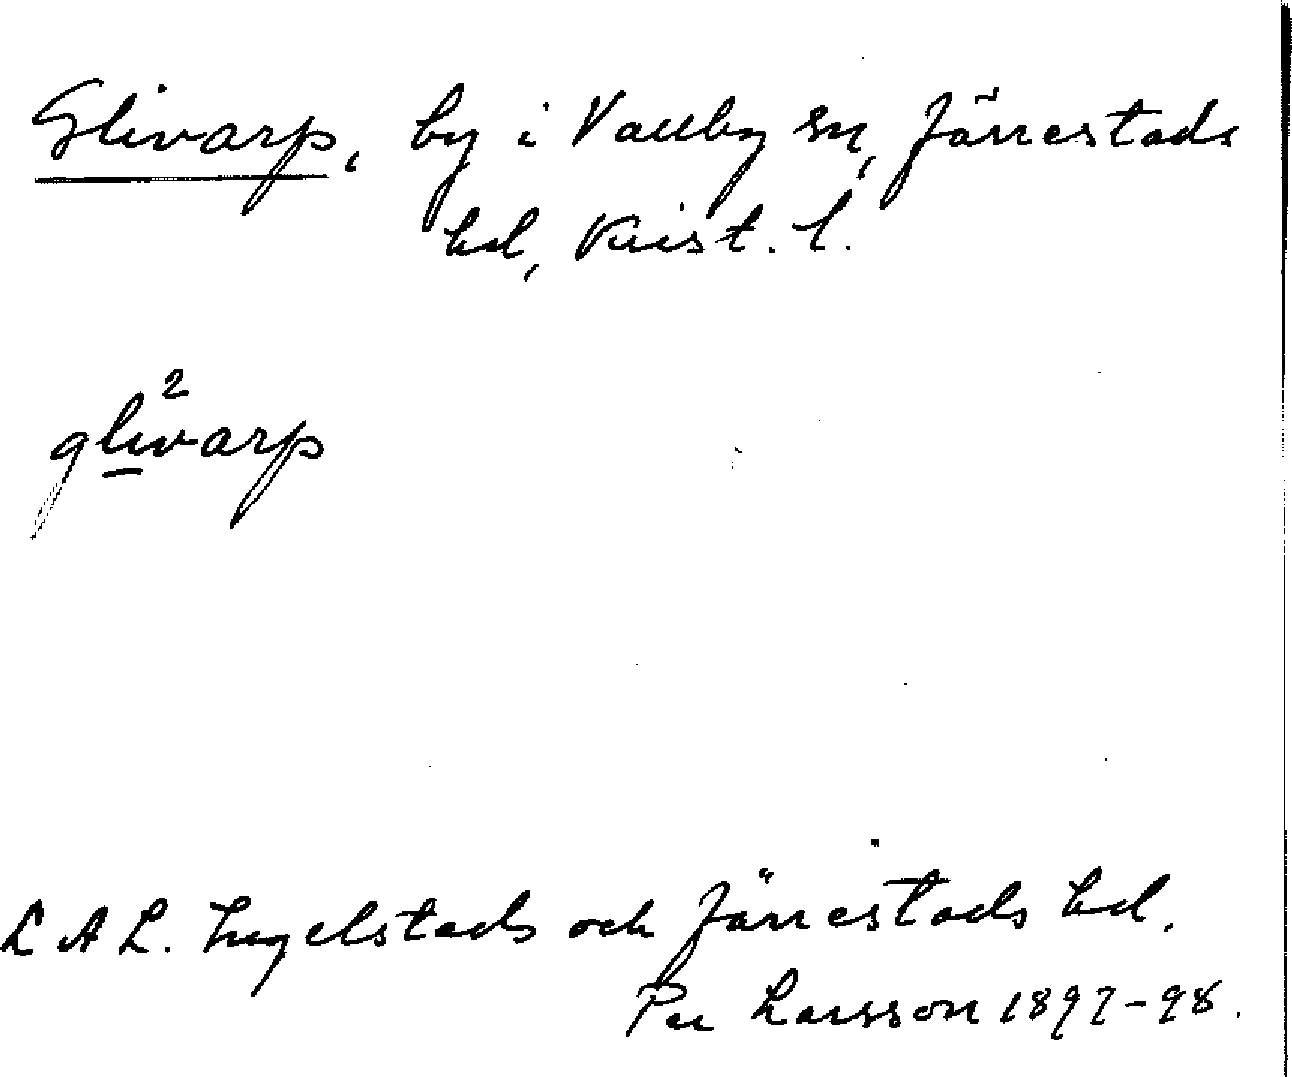 Glivarp, by i Vallby sn, Järrestads
hd, Krist. l.
gli²varp
LAL. Ingelstads och Järrestads hd.
Per Larsson 1897-98.